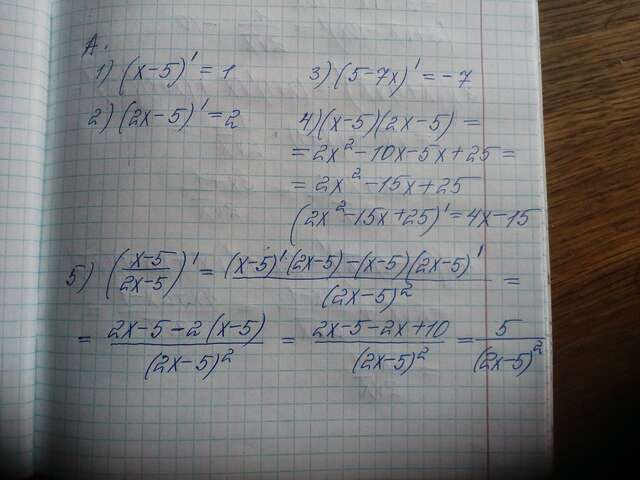 А.
1) (x-5)' = 1
3) (5-7x)' = -7
2) (2x-5)' = 2
4) (x-5)(2x-5) =
= 2x² - 10x - 5x + 25 =
= 2x² - 15x + 25
(2x² - 15x + 25)' = 4x - 15
5) ((x-5)/(2x-5))' = ((x-5)'·(2x-5) - (x-5)(2x-5)')/(2x-5)² =
= (2x-5-2(x-5))/(2x-5)² = (2x-5-2x+10)/(2x-5)² = 5/(2x-5)²